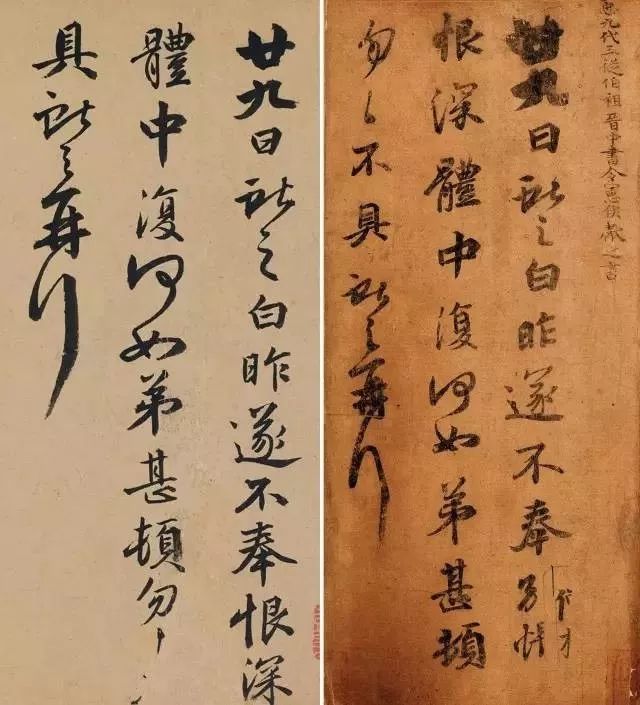 廿九日獻之白昨遂不奉恨深
體中復何如弟甚頓勿〻
具獻之再拜
九代三從伯祖晉中書令憲侯獻之書
廿九日獻之白昨遂不奉別悵
恨深體中復何如弟甚頓
勿〻不具獻之再拜